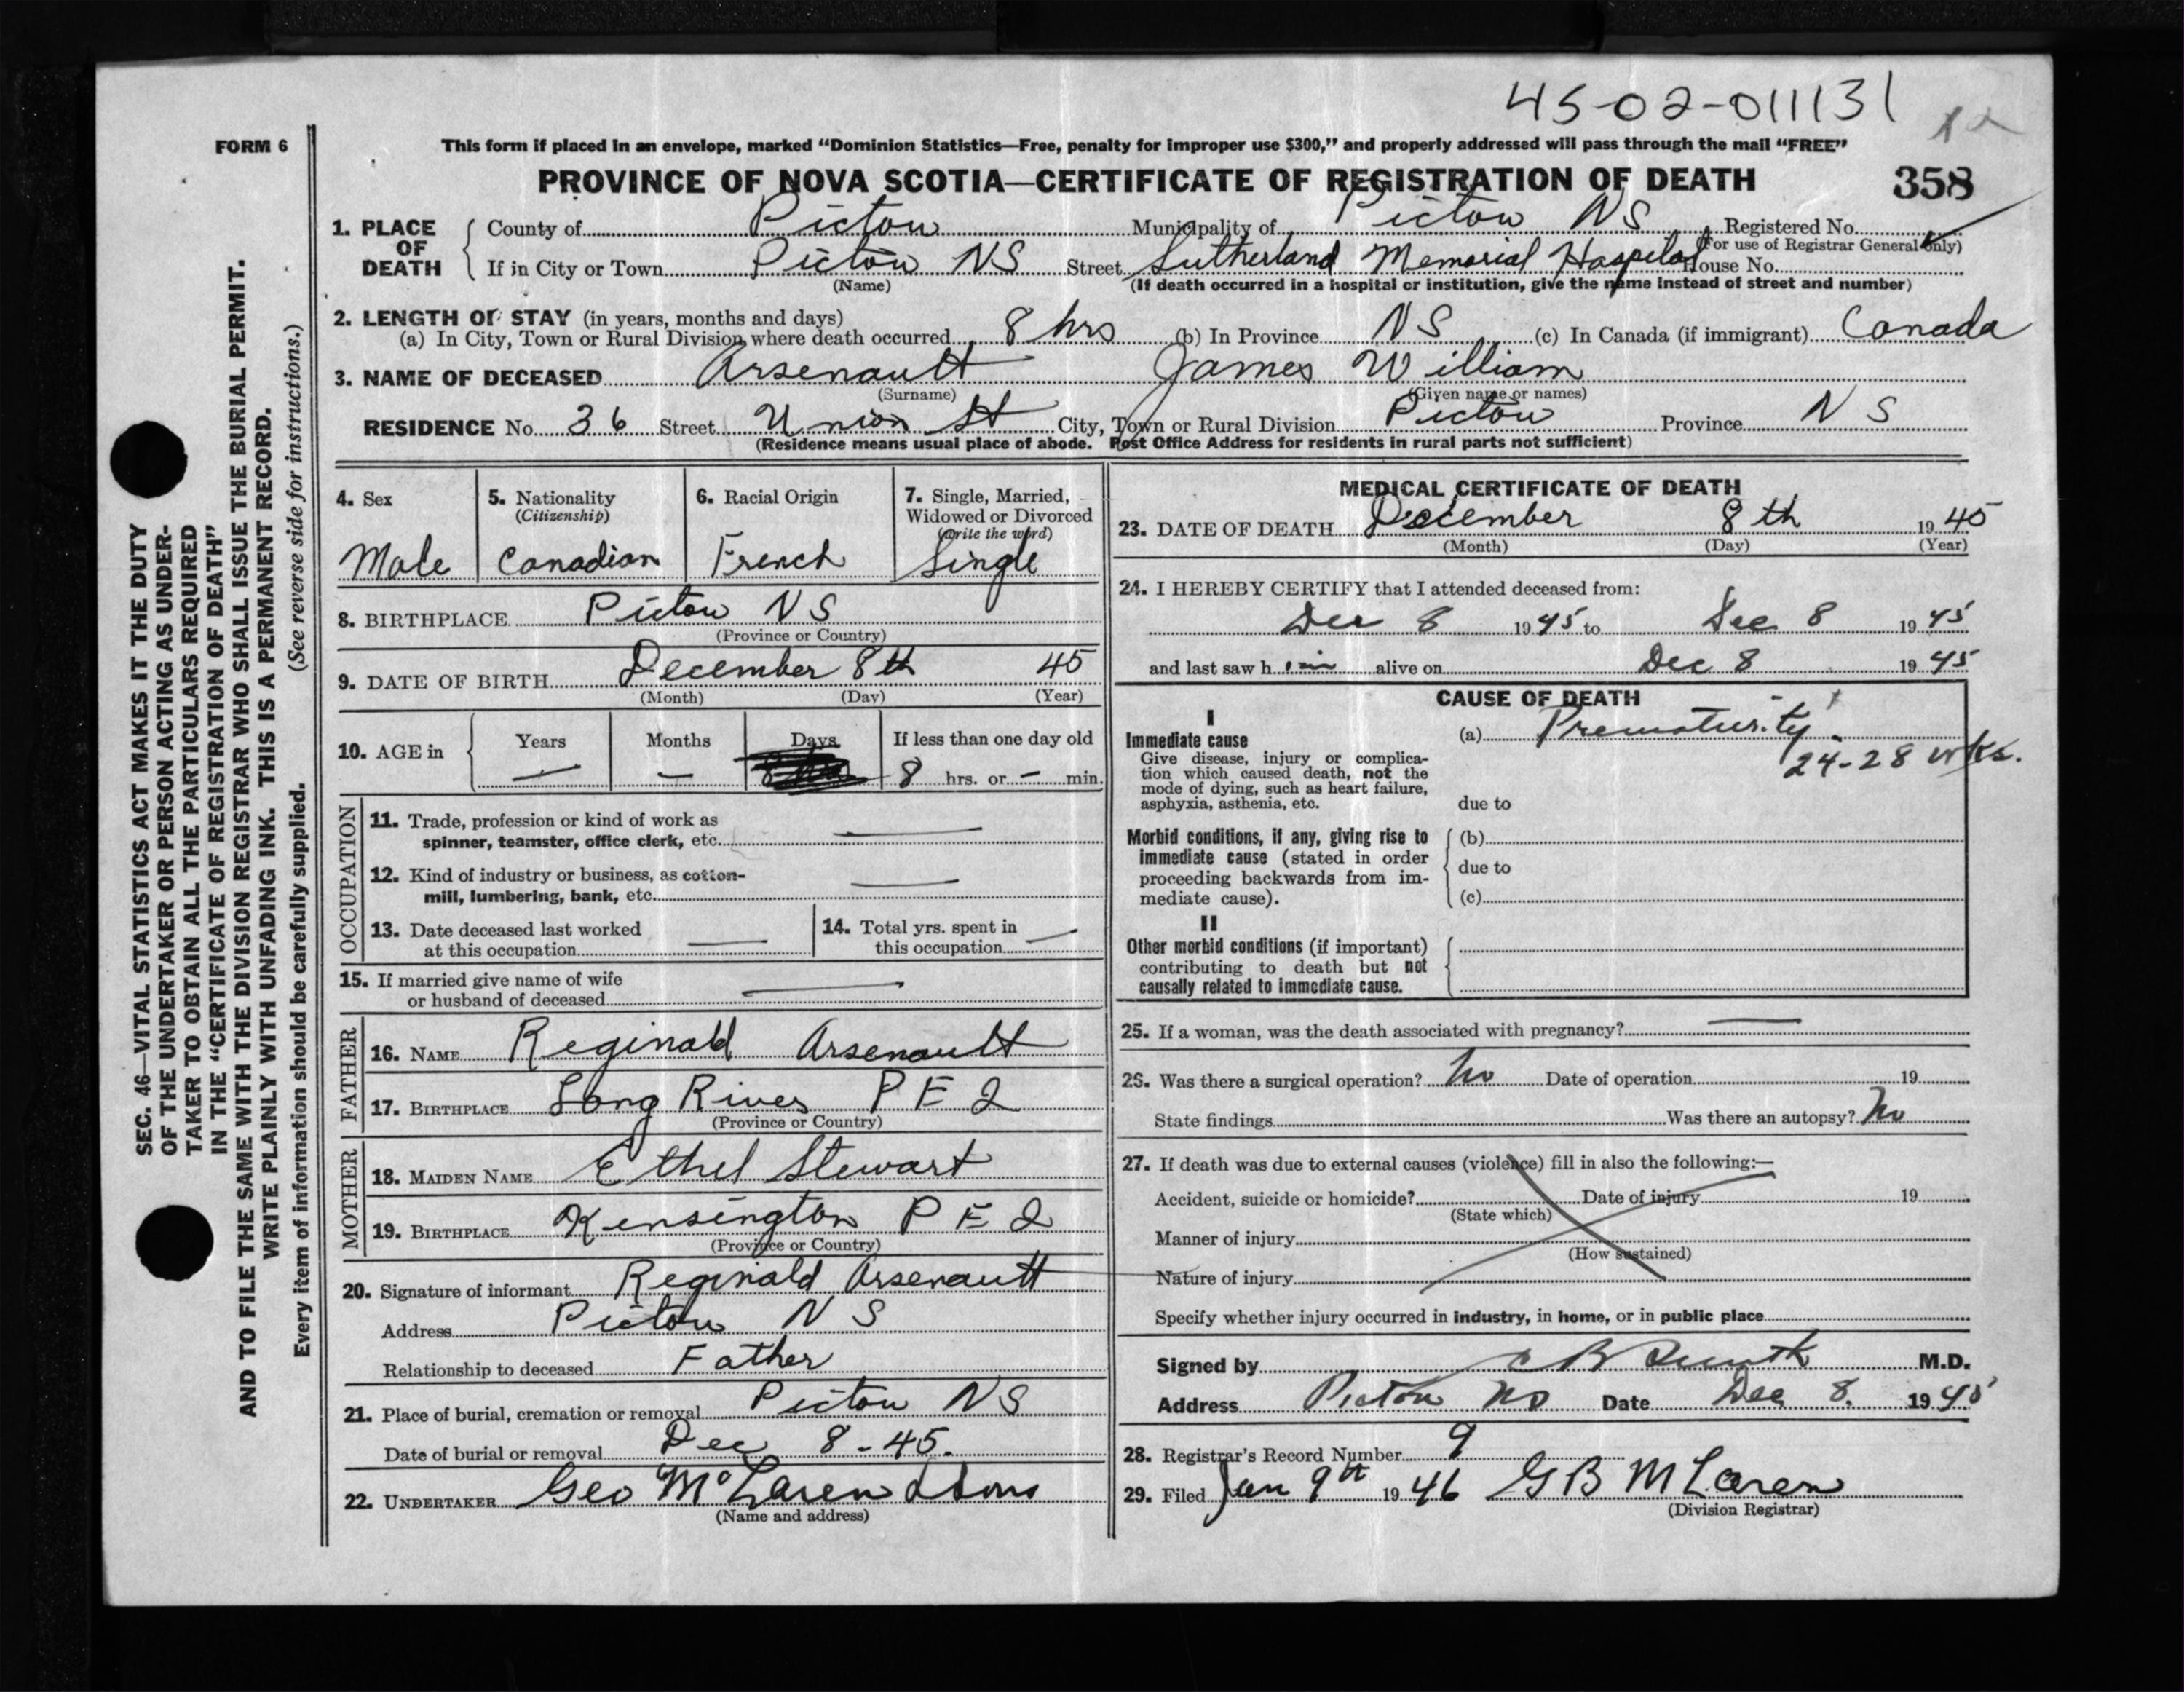 45-02-011131
FORM 6
This form if placed in an envelope, marked “Dominion Statistics—Free, penalty for improper use $300,” and properly addressed will pass through the mail “FREE”
PROVINCE OF NOVA SCOTIA—CERTIFICATE OF REGISTRATION OF DEATH 358
1. PLACE OF DEATH
County of Pictou Municipality of Pictou NS Registered No.
(For use of Registrar General Only)
If in City or Town Pictou NS Street Sutherland Memorial Hospital House No.
(Name) (If death occurred in a hospital or institution, give the name instead of street and number)
2. LENGTH OF STAY (in years, months and days)
(a) In City, Town or Rural Division where death occurred 8 hrs (b) In Province NS (c) In Canada (if immigrant) Canada
3. NAME OF DECEASED Arsenault James William
(Surname) (Given name or names)
RESIDENCE No. 36 Street Union St City, Town or Rural Division Pictou Province N S
(Residence means usual place of abode. Post Office Address for residents in rural parts not sufficient)
4. Sex
Male
5. Nationality
(Citizenship)
Canadian
6. Racial Origin
French
7. Single, Married,
Widowed or Divorced
(Write the word)
Single
8. BIRTHPLACE Pictou NS
(Province or Country)
9. DATE OF BIRTH December 8th 45
(Month) (Day) (Year)
10. AGE in Years Months Days If less than one day old
— — 8 hrs. or — min.
OCCUPATION
11. Trade, profession or kind of work as
spinner, teamster, office clerk, etc. —
12. Kind of industry or business, as cotton-
mill, lumbering, bank, etc. —
13. Date deceased last worked
at this occupation —
14. Total yrs. spent in
this occupation —
15. If married give name of wife
or husband of deceased —
FATHER
16. NAME Reginald Arsenault
17. BIRTHPLACE Long River P E I
(Province or Country)
MOTHER
18. MAIDEN NAME Ethel Stewart
19. BIRTHPLACE Kensington P E I
(Province or Country)
20. Signature of informant Reginald Arsenault
Address Pictou N S
Relationship to deceased Father
21. Place of burial, cremation or removal Pictou NS
Date of burial or removal Dec 8-45.
22. UNDERTAKER Geo McLaren & Sons
(Name and address)
MEDICAL CERTIFICATE OF DEATH
23. DATE OF DEATH December 8th 1945
(Month) (Day) (Year)
24. I HEREBY CERTIFY that I attended deceased from:
Dec 8 1945 to Dec 8 1945
and last saw him alive on Dec 8 1945
CAUSE OF DEATH
I
Immediate cause
Give disease, injury or complica-
tion which caused death, not the
mode of dying, such as heart failure,
asphyxia, asthenia, etc.
(a) Prematurity
24-28 wks.
due to
Morbid conditions, if any, giving rise to
immediate cause (stated in order
proceeding backwards from im-
mediate cause).
(b)
due to
(c)
II
Other morbid conditions (if important)
contributing to death but not
causally related to immediate cause.
25. If a woman, was the death associated with pregnancy? —
26. Was there a surgical operation? No Date of operation 19
State findings Was there an autopsy? No
27. If death was due to external causes (violence) fill in also the following:—
Accident, suicide or homicide? Date of injury 19
(State which)
Manner of injury
(How sustained)
Nature of injury
Specify whether injury occurred in industry, in home, or in public place
Signed by M.D.
Address Pictou NS Date Dec 8. 1945
28. Registrar's Record Number 9
29. Filed Jan 9th 1946 G B McLaren
(Division Registrar)
SEC. 46—VITAL STATISTICS ACT MAKES IT THE DUTY
OF THE UNDERTAKER OR PERSON ACTING AS UNDER-
TAKER TO OBTAIN ALL THE PARTICULARS REQUIRED
IN THE “CERTIFICATE OF REGISTRATION OF DEATH”
AND TO FILE THE SAME WITH THE DIVISION REGISTRAR WHO SHALL ISSUE THE BURIAL PERMIT.
WRITE PLAINLY WITH UNFADING INK. THIS IS A PERMANENT RECORD.
Every item of information should be carefully supplied. (See reverse side for instructions.)